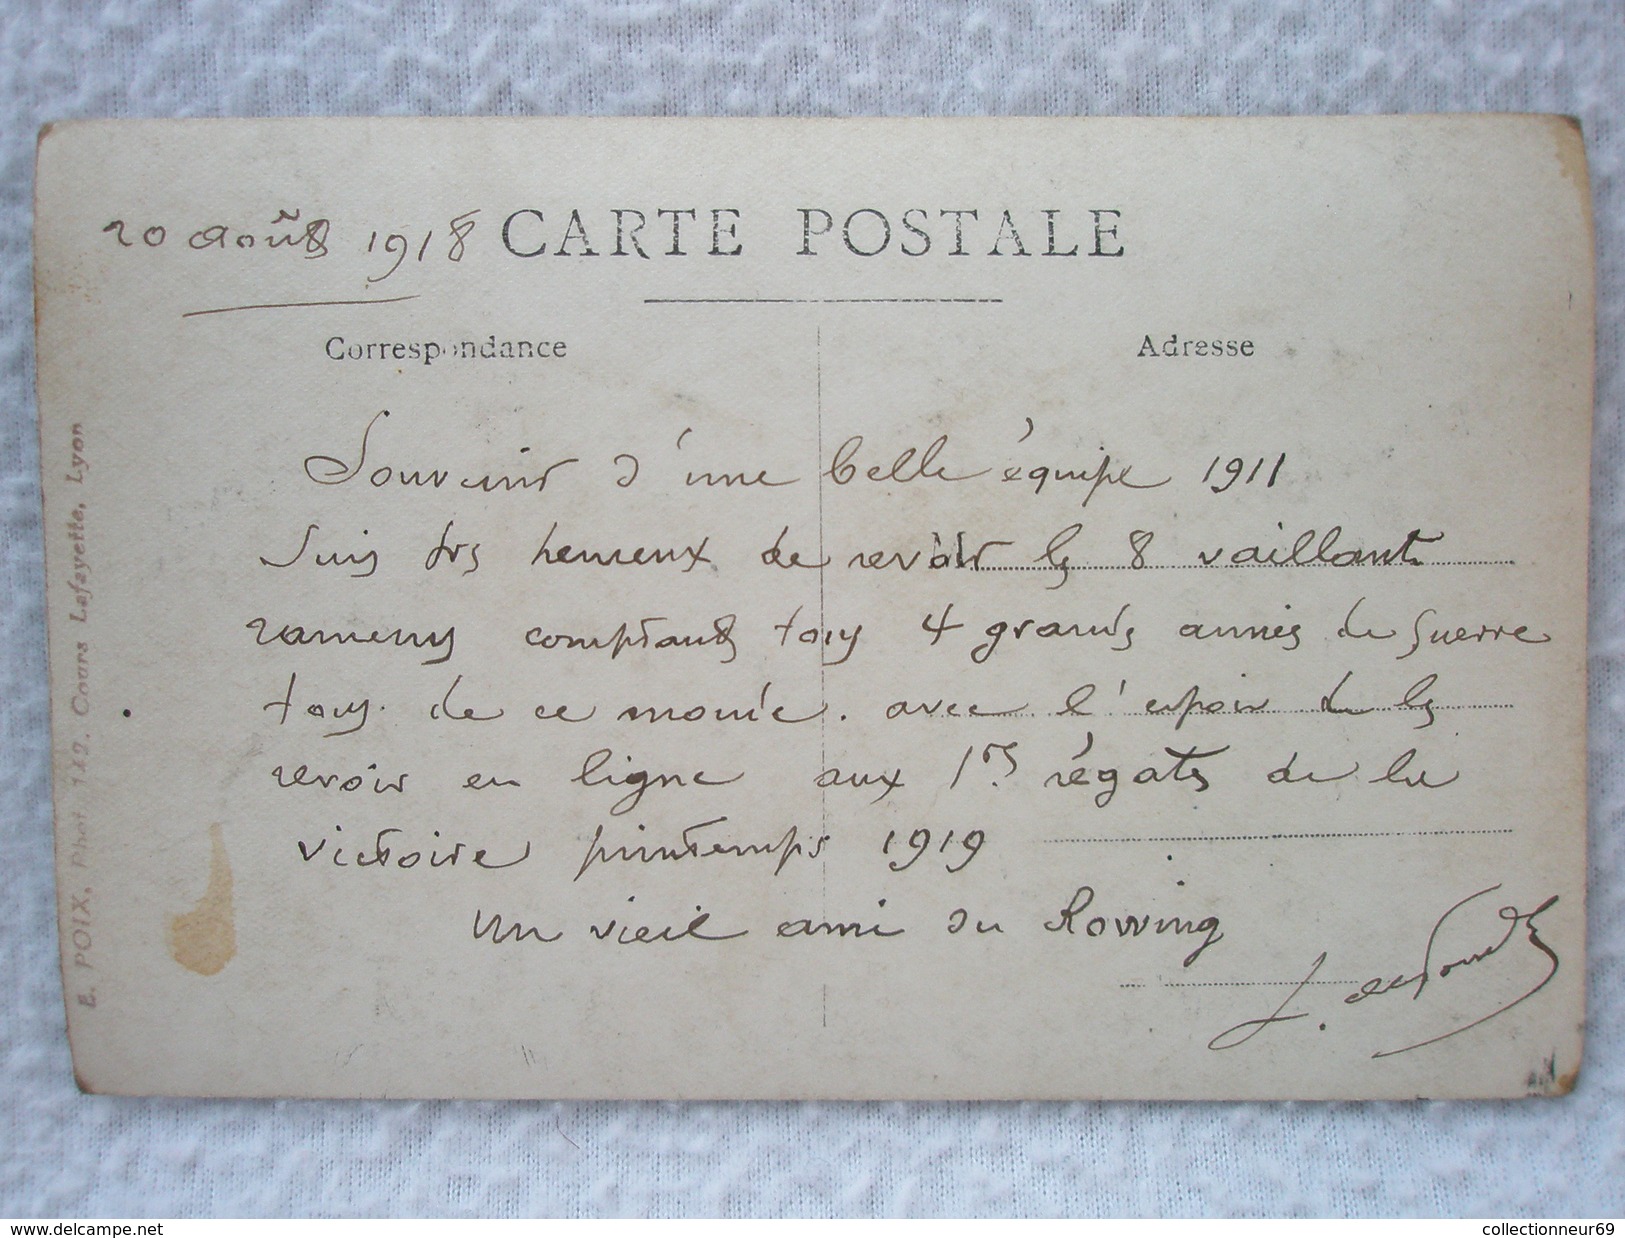 20 août 1918
CARTE POSTALE
Correspondance
Adresse
Souvenir d'une belle équipe 1911
Suis très heureux de revoir les 8 vaillants
rameurs comptants tous 4 grands années de guerre
tous de ce monde. avec l'espoir de les
revoir en ligne aux 1res régates de la
victoire printemps 1919
un vieil ami du Rowing
J.
E. POIX, Phot 142. Cours Lafayette, Lyon
www.delcampe.net
collectionneur69